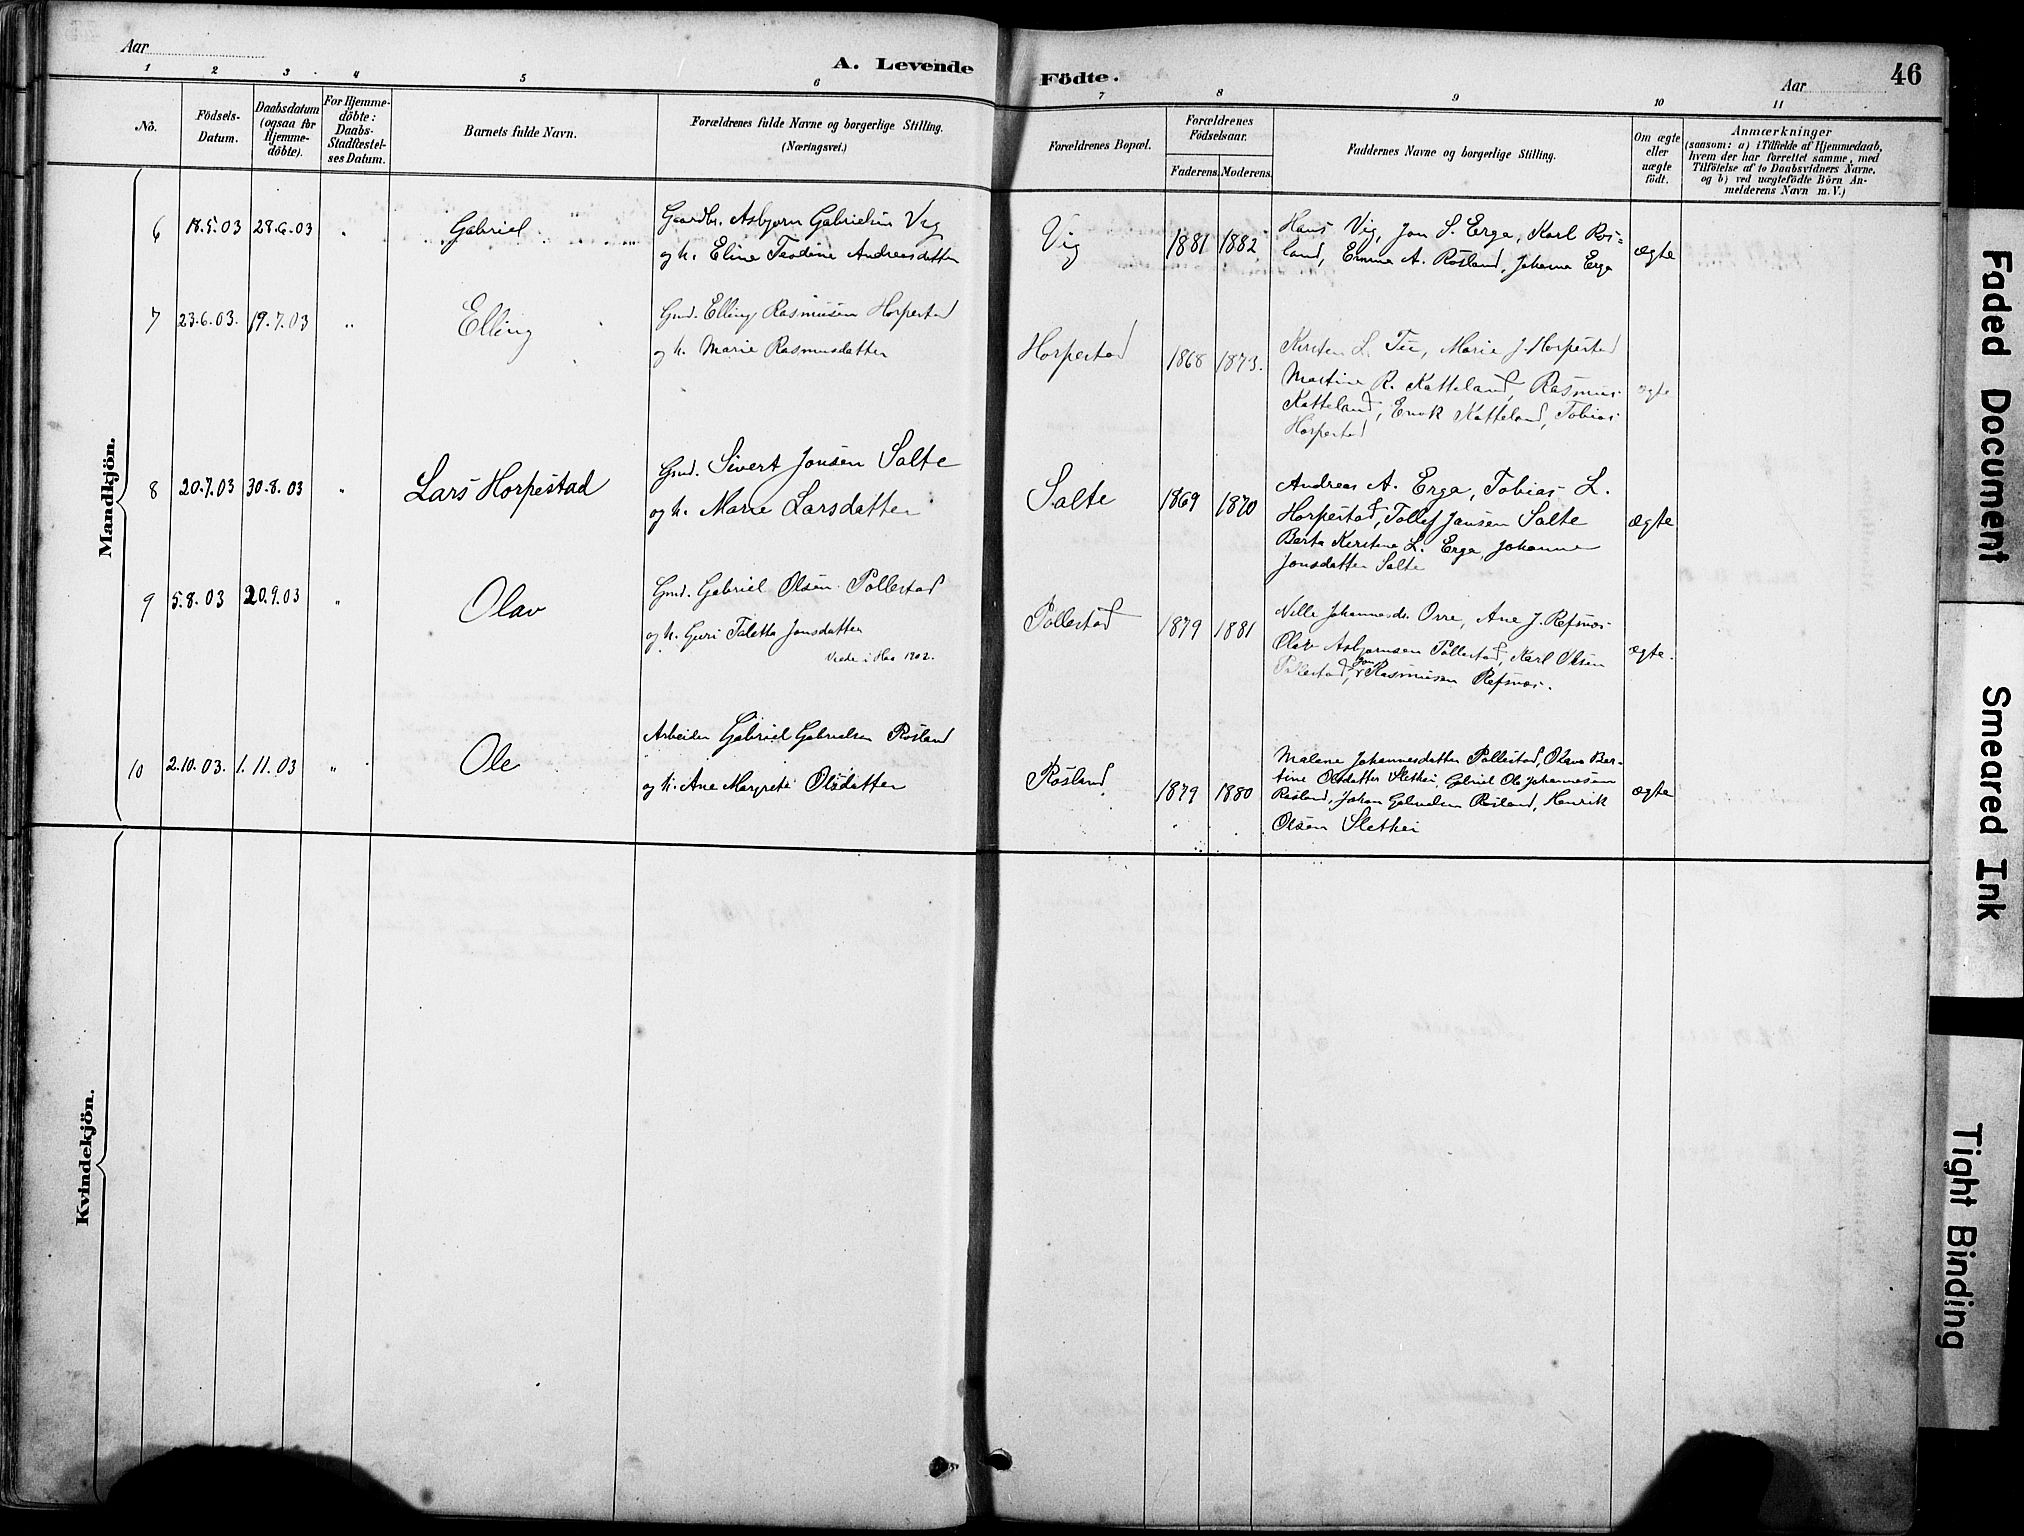 Aar
A. Levende
Födte.
Aar
46
1
2
3
4
5
6
7
8
9
10
11
No.
Födsels-
Datum.
Daabsdatum
(ogsaa for
Hjemme-
döbte).
For Hjemme-
döbte:
Daabs-
Stadfæstel-
ses Datum.
Barnets fulde Navn.
Forældrenes fulde Navne og borgerlige Stilling.
(Næringsvei.)
Forældrenes Bopæl.
Forældrenes
Födselsaar.
Faderens.
Moderens.
Faddernes Navne og borgerlige Stilling.
Om ægte
eller
uægte
födt.
Anmærkninger
(saasom: a) i Tilfælde af Hjemmedaab,
hvem der har forrettet samme, med
Tilföielse af to Daabsvidners Navne,
og b) ved uægtefödte Börn An-
melderens Navn m. V.)
Mandkjön.
6
18.5.03
28.6.03
"
Gabriel
Gaardbr. Asbjørn Gabrielsen Vig
og h. Eline Teodine Andreasdatter
Vig
1881
1882
Hans Vig, Jon S. Erga, Karl Ros-
land, Emma A. Rosland, Johanna Erga
ægte
7
23.6.03.
19.7.03
"
Elling
Gmd. Elling Rasmusen Horpestad
og h. Marie Rasmusdatter
Horpestad
1868
1873.
Kirsten L. Tu, Marie J. Horpestad
Martine R. Katteland, Rasmus
Katteland, Enok Katteland, Tobias
Horpestad
ægte
8
20.7.03
30.8.03
"
Lars Horpestad
Gmd. Sivert Jonsen Salte
og h. Marie Larsdatter
Salte
1869
1870
Andreas A. Erga, Tobias L.
Horpestad, Tollef Jansen Salte
Berta Kirstine L. Erga, Johanne
Jonsdatter Salte
ægte
9
5.8.03
20.9.03
"
Olav
Gmd. Gabriel Olsen Pollestad
og h. Guri Taletta Jonsdatter
Viede i Haa 1902.
Pollestad
1879
1881
Nille Johannesdr. Orre, Ane J. Refsnes
Olav Asbjørnsen Pollestad, Karl Olsen
Pollestad, Jon Rasmusen Refsnes.
ægte.
10
2.10.03.
1.11.03
"
Ole
Arbeider Gabriel Gabrielsen Rosland
og h. Ane Margrete Olsdatter
Rosland
1879
1880
Malene Johannesdatter Pollestad, Olava Ber-
tine Olsdatter Slethei, Gabriel Ole Johannesen
Rosland, Johan Gabrielsen Rosland, Henrik
Olsen Slethei
ægte
Kvindekjön.
Faded Document
Smeared Ink
Tight Binding